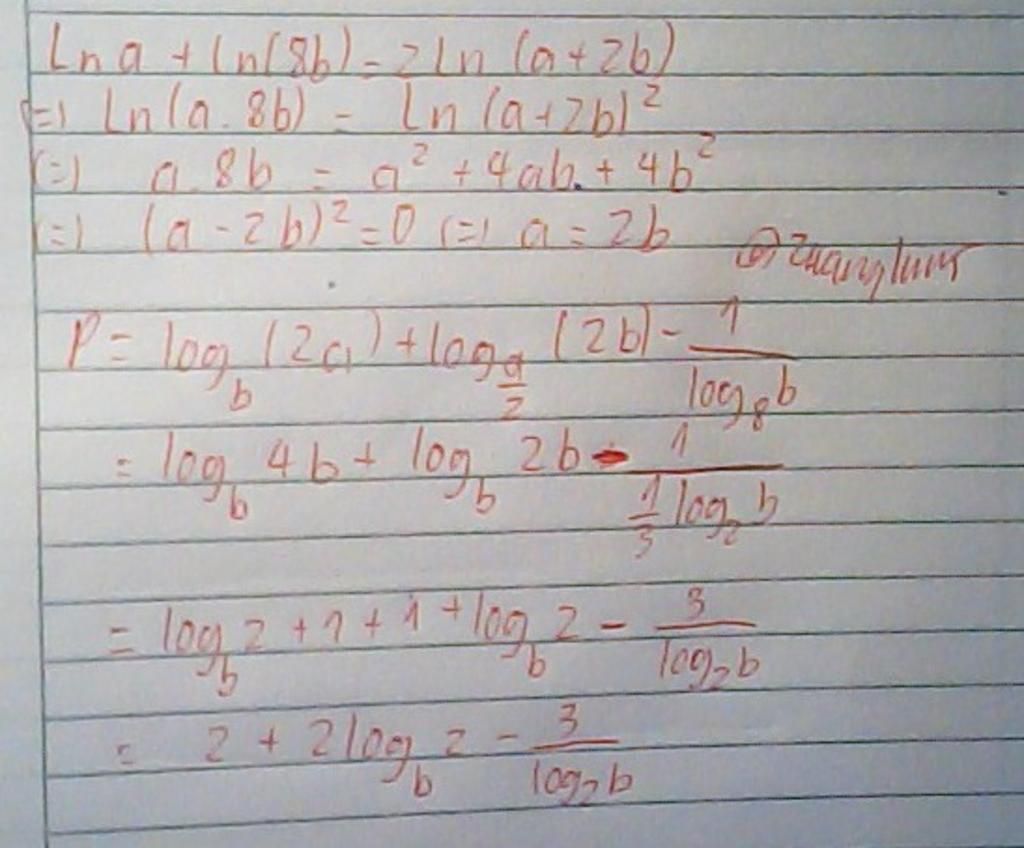 Ln a + ln(8b) = 2ln (a+2b)
(=) Ln(a.8b) = Ln (a+2b)²
(=) a.8b = a² + 4ab + 4b²
(=) (a-2b)² = 0 (=) a = 2b
P = log_b (2a) + log_{a/2} (2b) - 1/(log_8 b)
= log_b 4b + log_b 2b - 1/(1/3 log_2 b)
= log_b 2 + 1 + 1 + log_b 2 - 3/(log_2 b)
= 2 + 2log_b 2 - 3/(log_2 b)